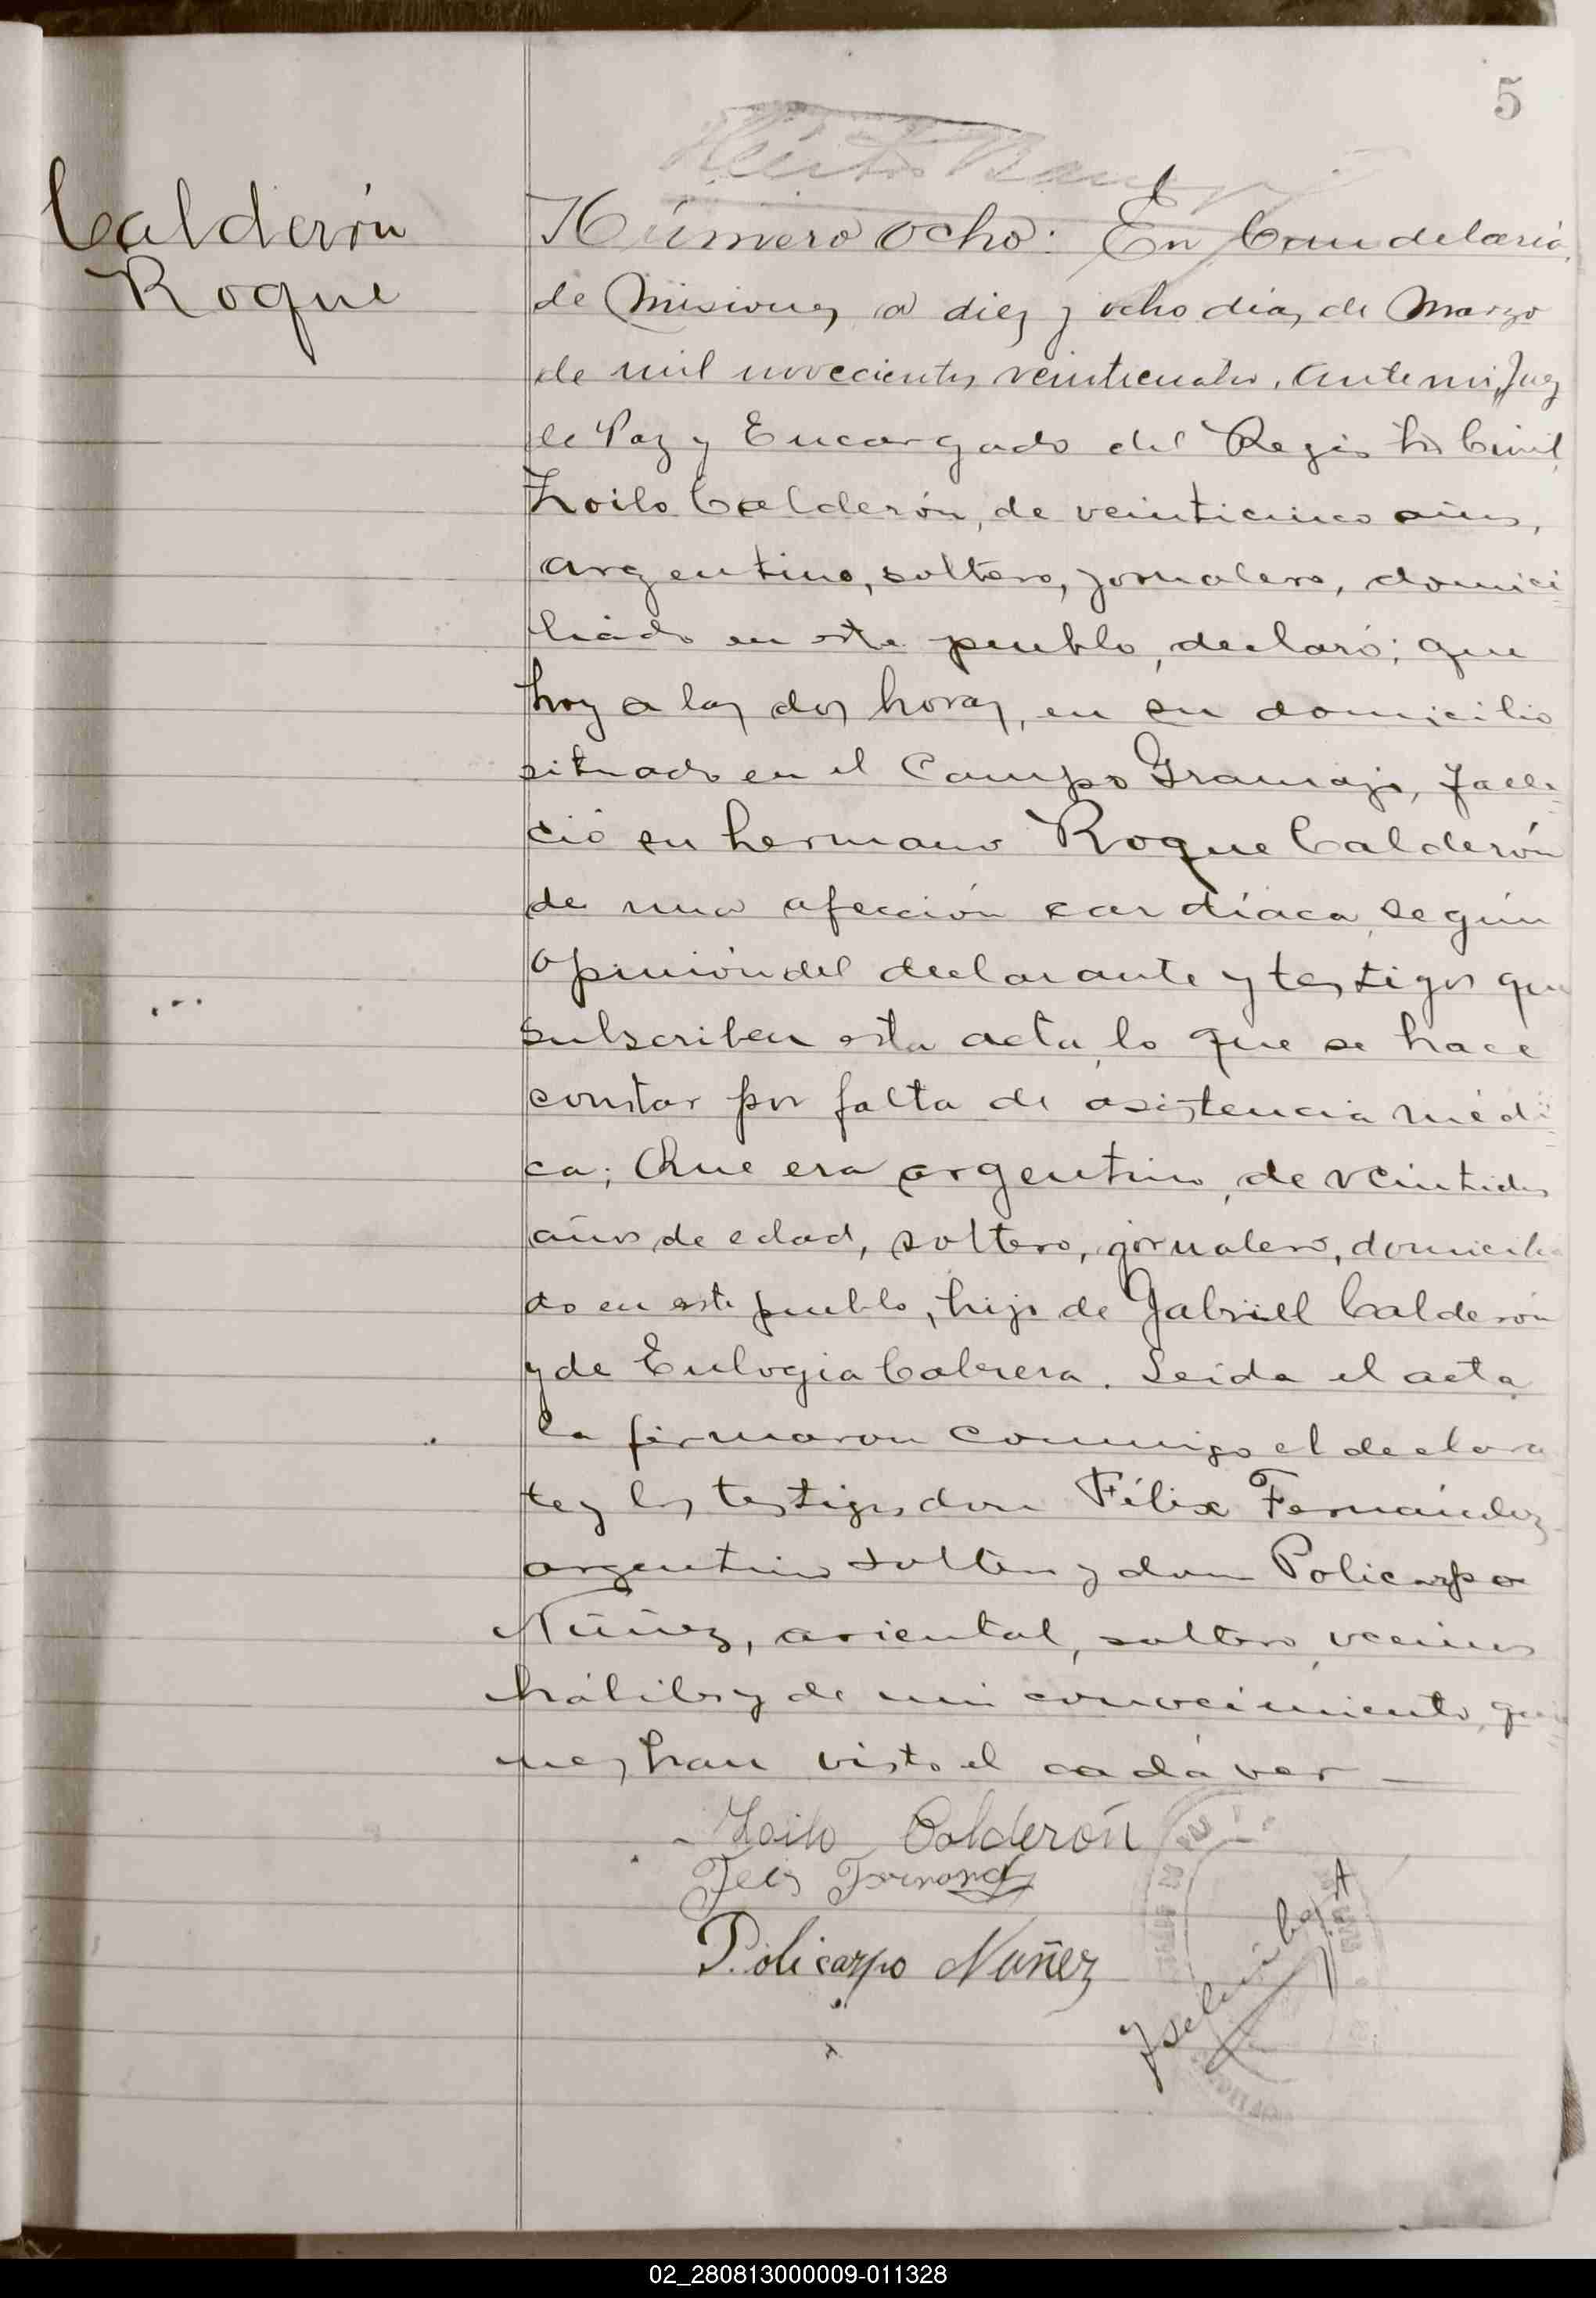 5
Calderón
Roque
Número ocho: En Candelaria,
de Misiones, a diez y ocho días de Marzo
de mil novecientos veinticuatro, ante mi, Juez
de Paz y Encargado del Registro Civil,
Zoilo Calderón, de veinticinco años,
argentino, soltero, jornalero, domici=
liado en este pueblo, declaró; que
hoy a las dos horas, en su domicilio
situado en el Campo Gramajo, falle=
ció su hermano Roque Calderón
de una afección cardíaca, según
opinión del declarante y testigos que
subscriben esta acta, lo que se hace
constar por falta de asistencia médi=
ca; Que era argentino, de veintidos
años de edad, soltero, jornalero, domicilia
do en este pueblo, hijo de Gabriel Calderón
y de Eulogia Cabrera. Leida el acta
la firmaron conmigo el declaran
te y los testigos don Félix Fernández
argentino soltero y don Policarpo
Núñez, oriental, soltero, vecinos
hábiles y de mi conocimiento, quie=
nes han visto el cadáver —
Zoilo Calderón
Policarpo Nuñez
02_280813000009-011328